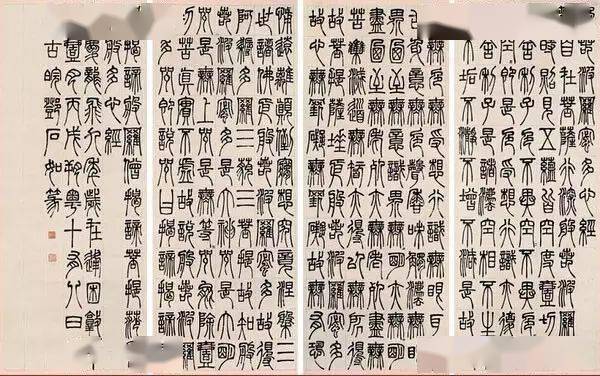 多心經
自在菩薩行深般若波羅
時照見五蘊皆空度一切
舍利子色不異空空不異色
空即是色受想行識亦復
舍利子是諸法空相不生
不垢不淨不增不減是故
無色無受想行識無眼耳
意無色聲香味觸法無眼
界乃至無意識界無無明亦無
盡乃至無老死亦無老死盡
苦集滅道無智亦無得以無
故菩提薩埵依般若波羅
故心無罣礙無罣礙故無有恐
怖遠離顛倒夢想究竟涅槃三
世諸佛依般若波羅蜜多故得
阿耨多羅三藐三菩提故知般
波羅蜜多是大神咒是大明
咒是無上咒是無等咒能除壹
切苦真實不虛故說般若波羅
多咒即說咒曰揭諦揭諦
揭諦般羅僧揭諦菩提薩
般若多心經
龍飛八年歲在
壹月丙戌朔粵十有八日
古皖鄧石如篆